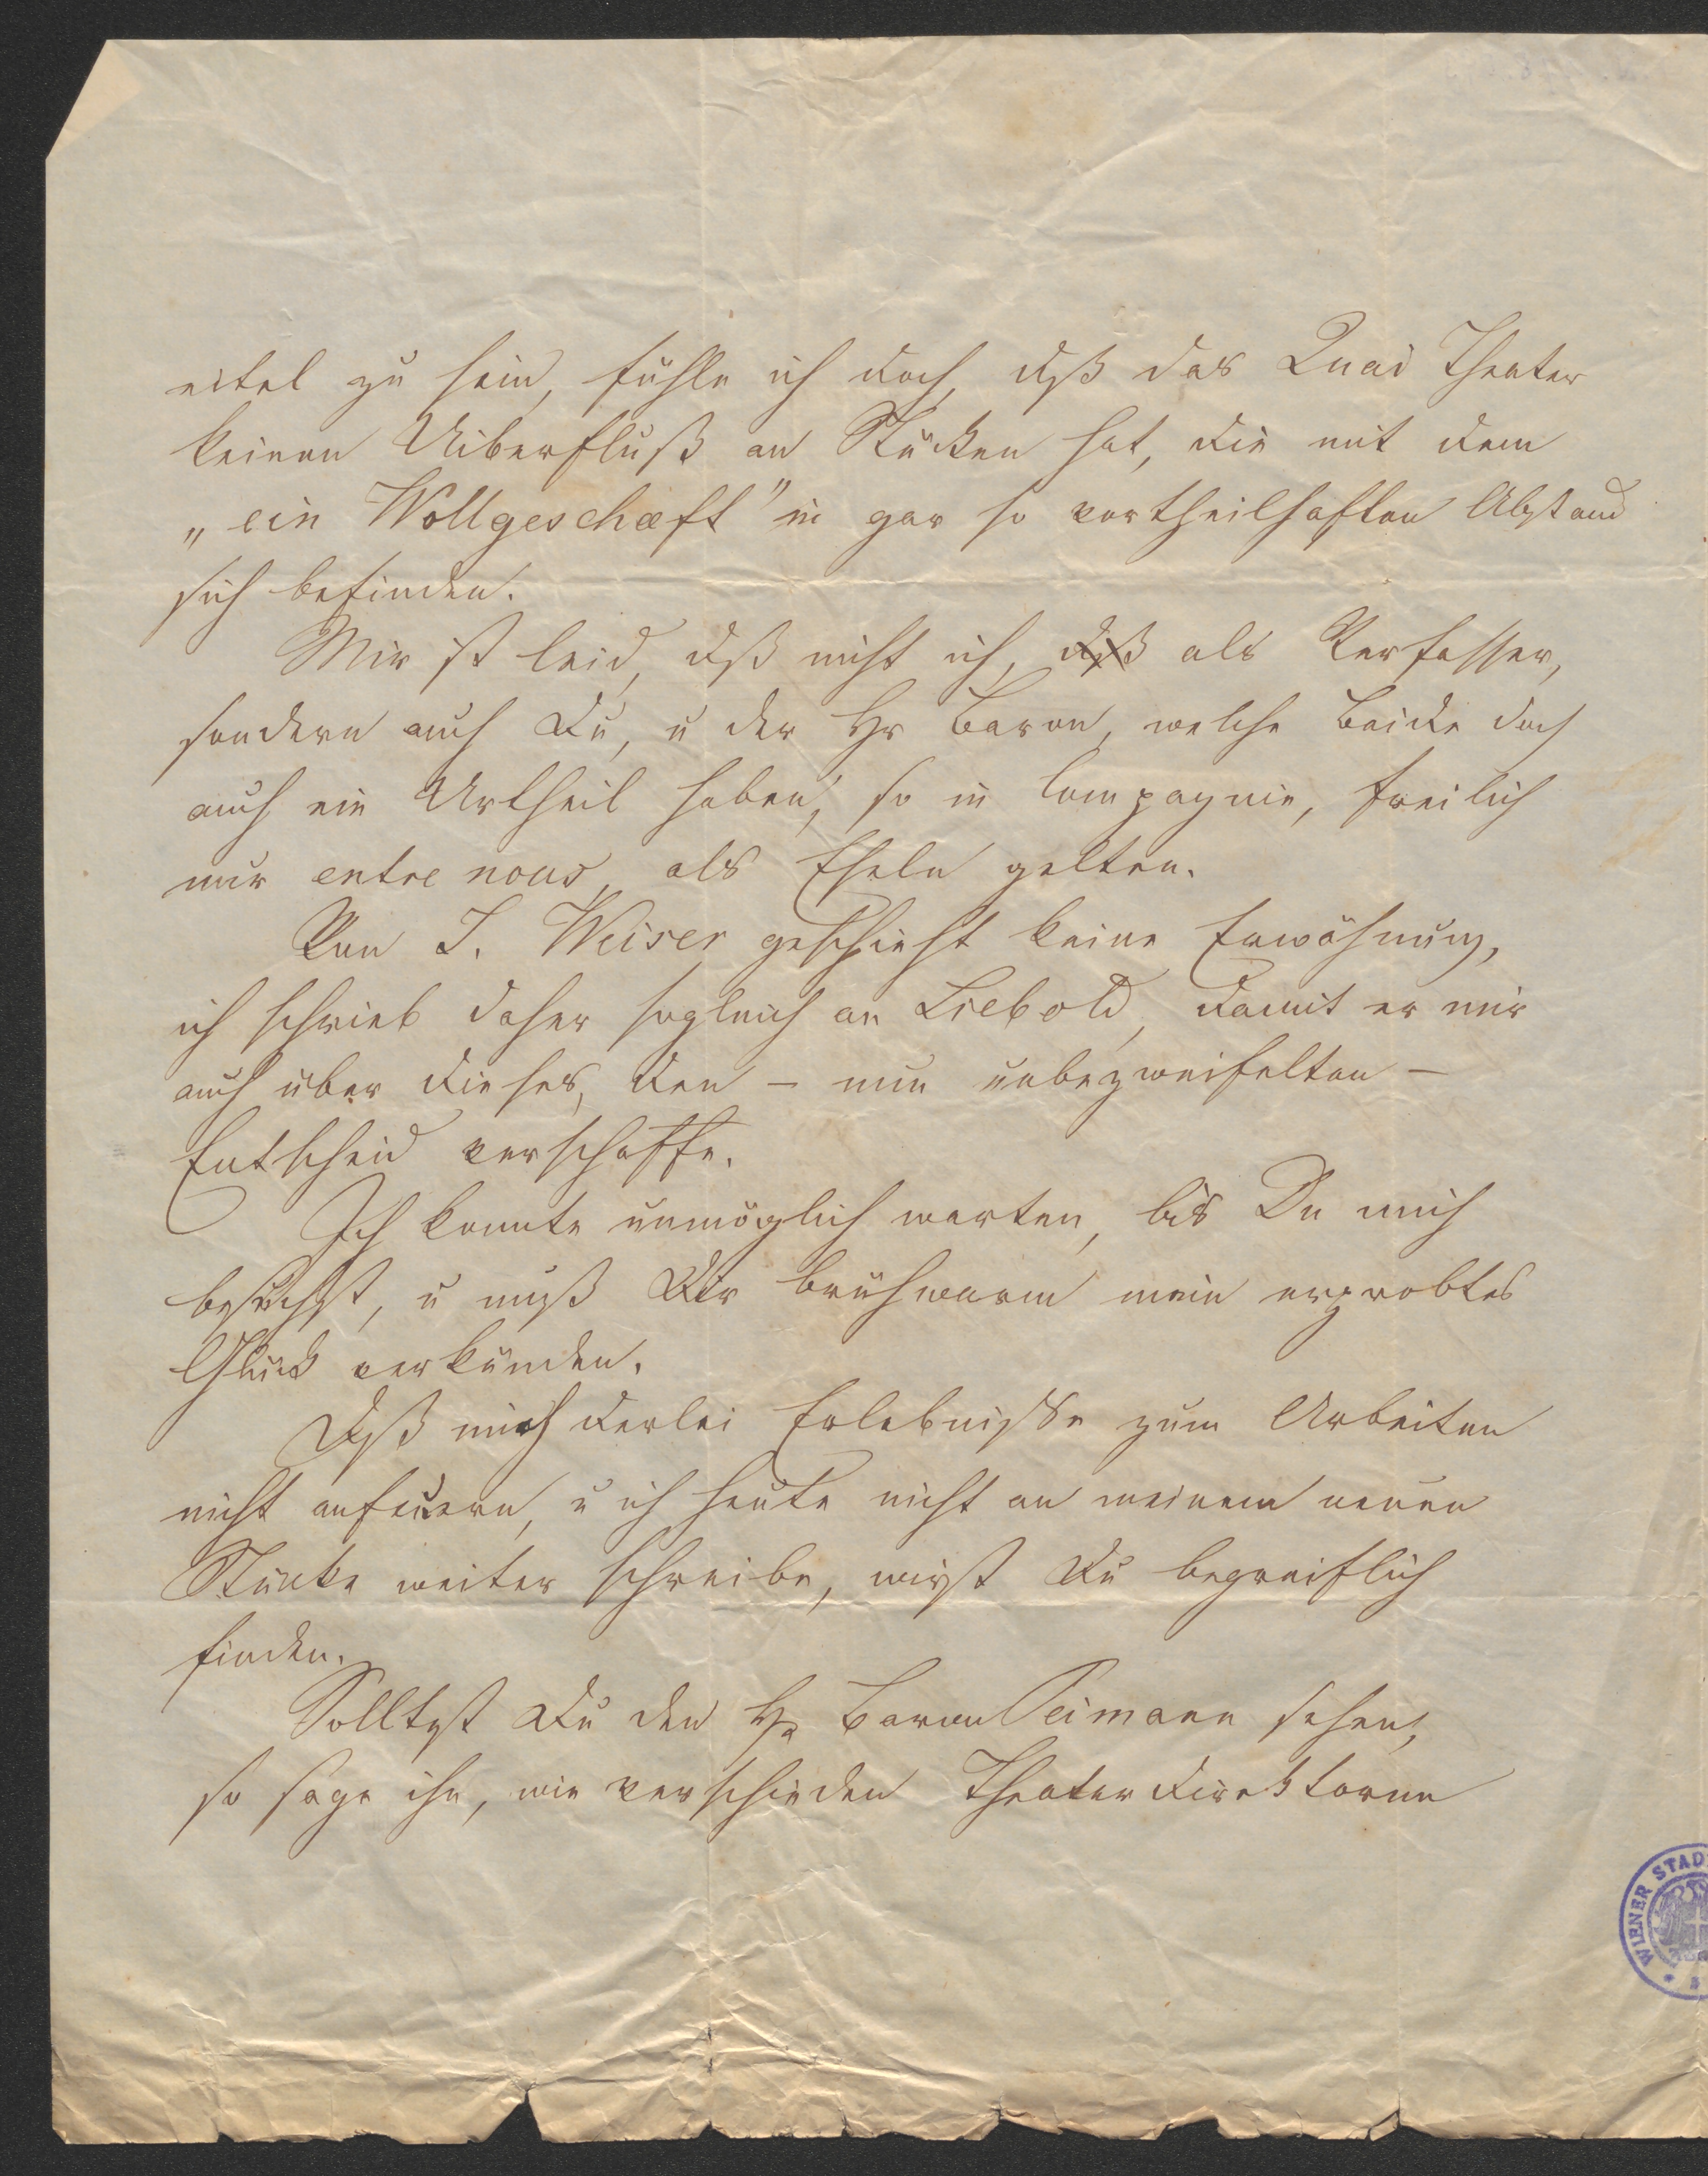 eitel zu sein, fühle ich doch, dß das Quai Theater
keinen Uiberfluß an Stücken hat, die mit dem
„ein Wollgeschæft" in gar so vortheilhaften Abstand
sich befinden.
Mir ist leid, dß nicht ich, dß als Verfasser,
sondern auch Du, u der Hr Baron, welche Beide doch
auch ein Urtheil haben, so in Compagnie, freilich
nur entre nous, als Eseln gelten.
Von J. Weiser geschieht keine Erwähnung,
ich schrieb daher sogleich an Liebold, damit er mir
auch über dieses, den – nun unbezweifelten –
Entscheid verschaffe.
Ich konnte unmöglich warten, bis Du mich
besuchst, u muß Dir brühwarm mein erprobtes
Glück verkünden.
Dß mich derlei Erlebnisse zum Arbeiten
nicht anfeuern, u ich heute nicht an meinem neuen
Stücke weiter schreibe, wirst Du begreiflich
finden.
Solltest Du den Hr Baron Reimann sehen,
so sage ihn, wie verschieden Theaterdirektoren
WIENER STAD